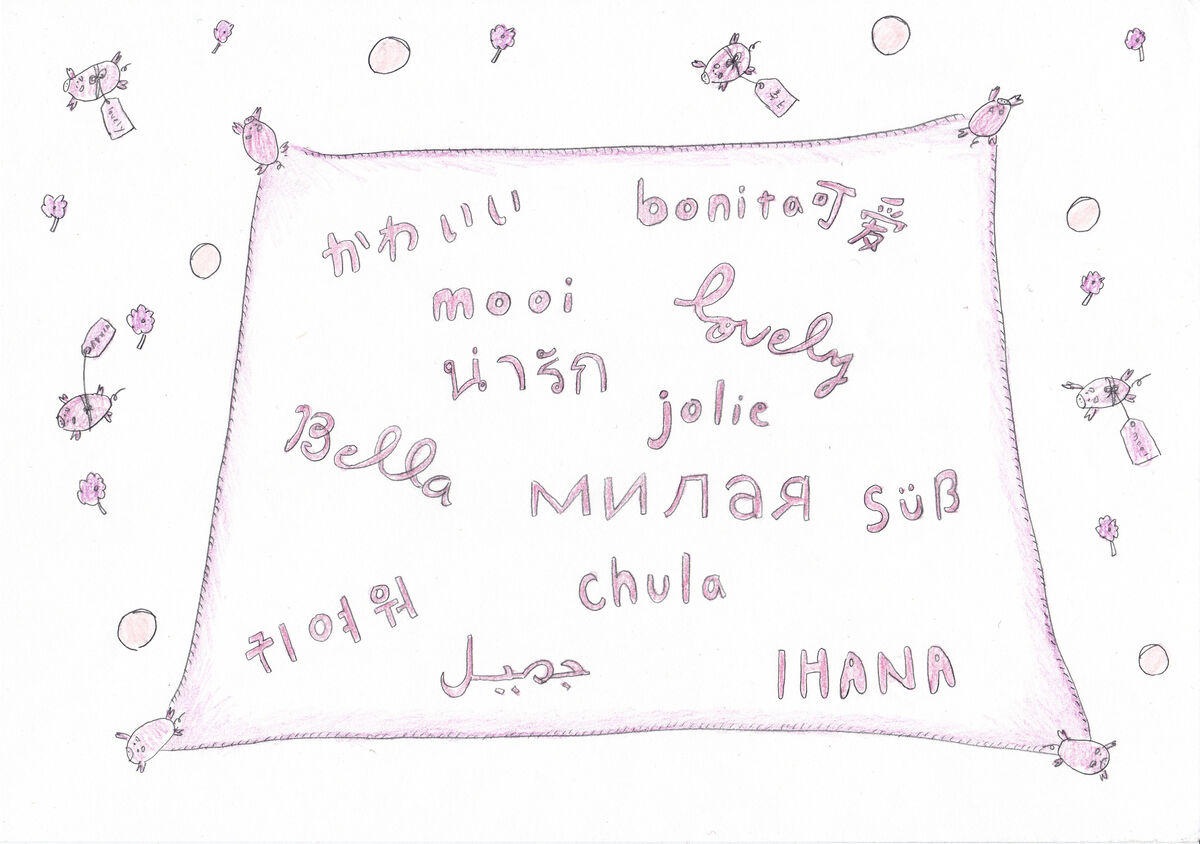 かわいい
bonita 可爱
mooi
lovely
น่ารัก
jolie
Bella
милая
süß
chula
귀여워
جميل
IHANA